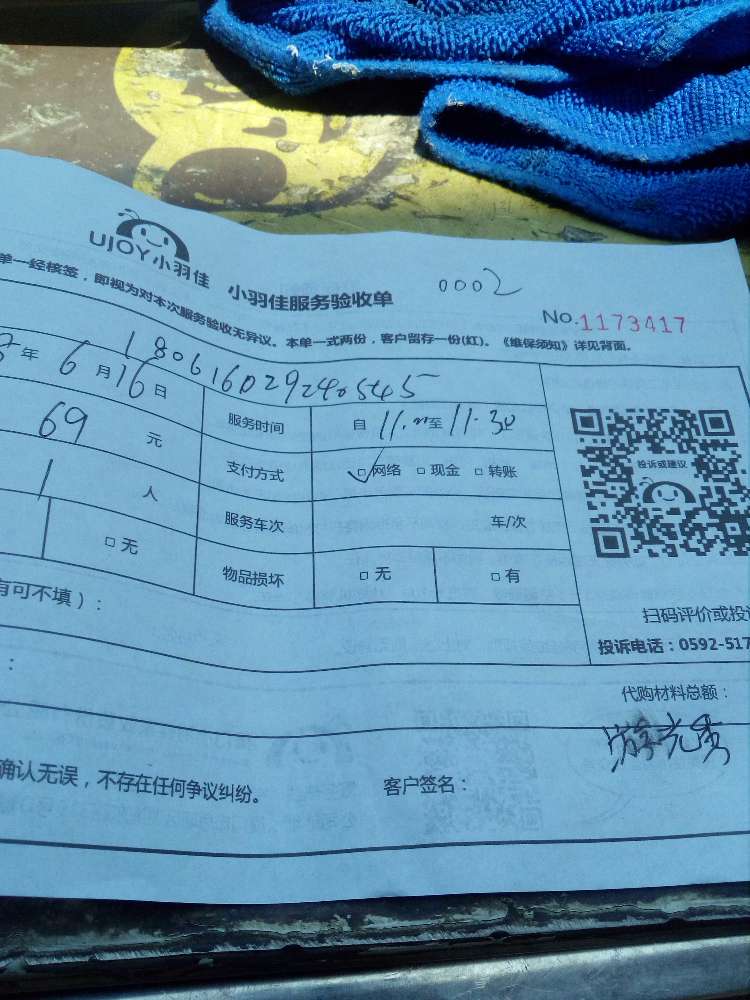 UJOY小羽佳 小羽佳服务验收单 0002
No.1173417
单一经核签，即视为对本次服务验收无异议。本单一式两份，客户留存一份(红)。《维保须知》详见背面。
180616029240545
年 6月16日 服务时间 自 11. 至 11.30
投诉或建议
69 元 支付方式 □网络 □现金 □转账
1 人 服务车次 车/次
□无 物品损坏 □无 □有
有可不填）：
扫码评价或投
投诉电话：0592-517
：
代购材料总额：
确认无误，不存在任何争议纠纷。 客户签名：